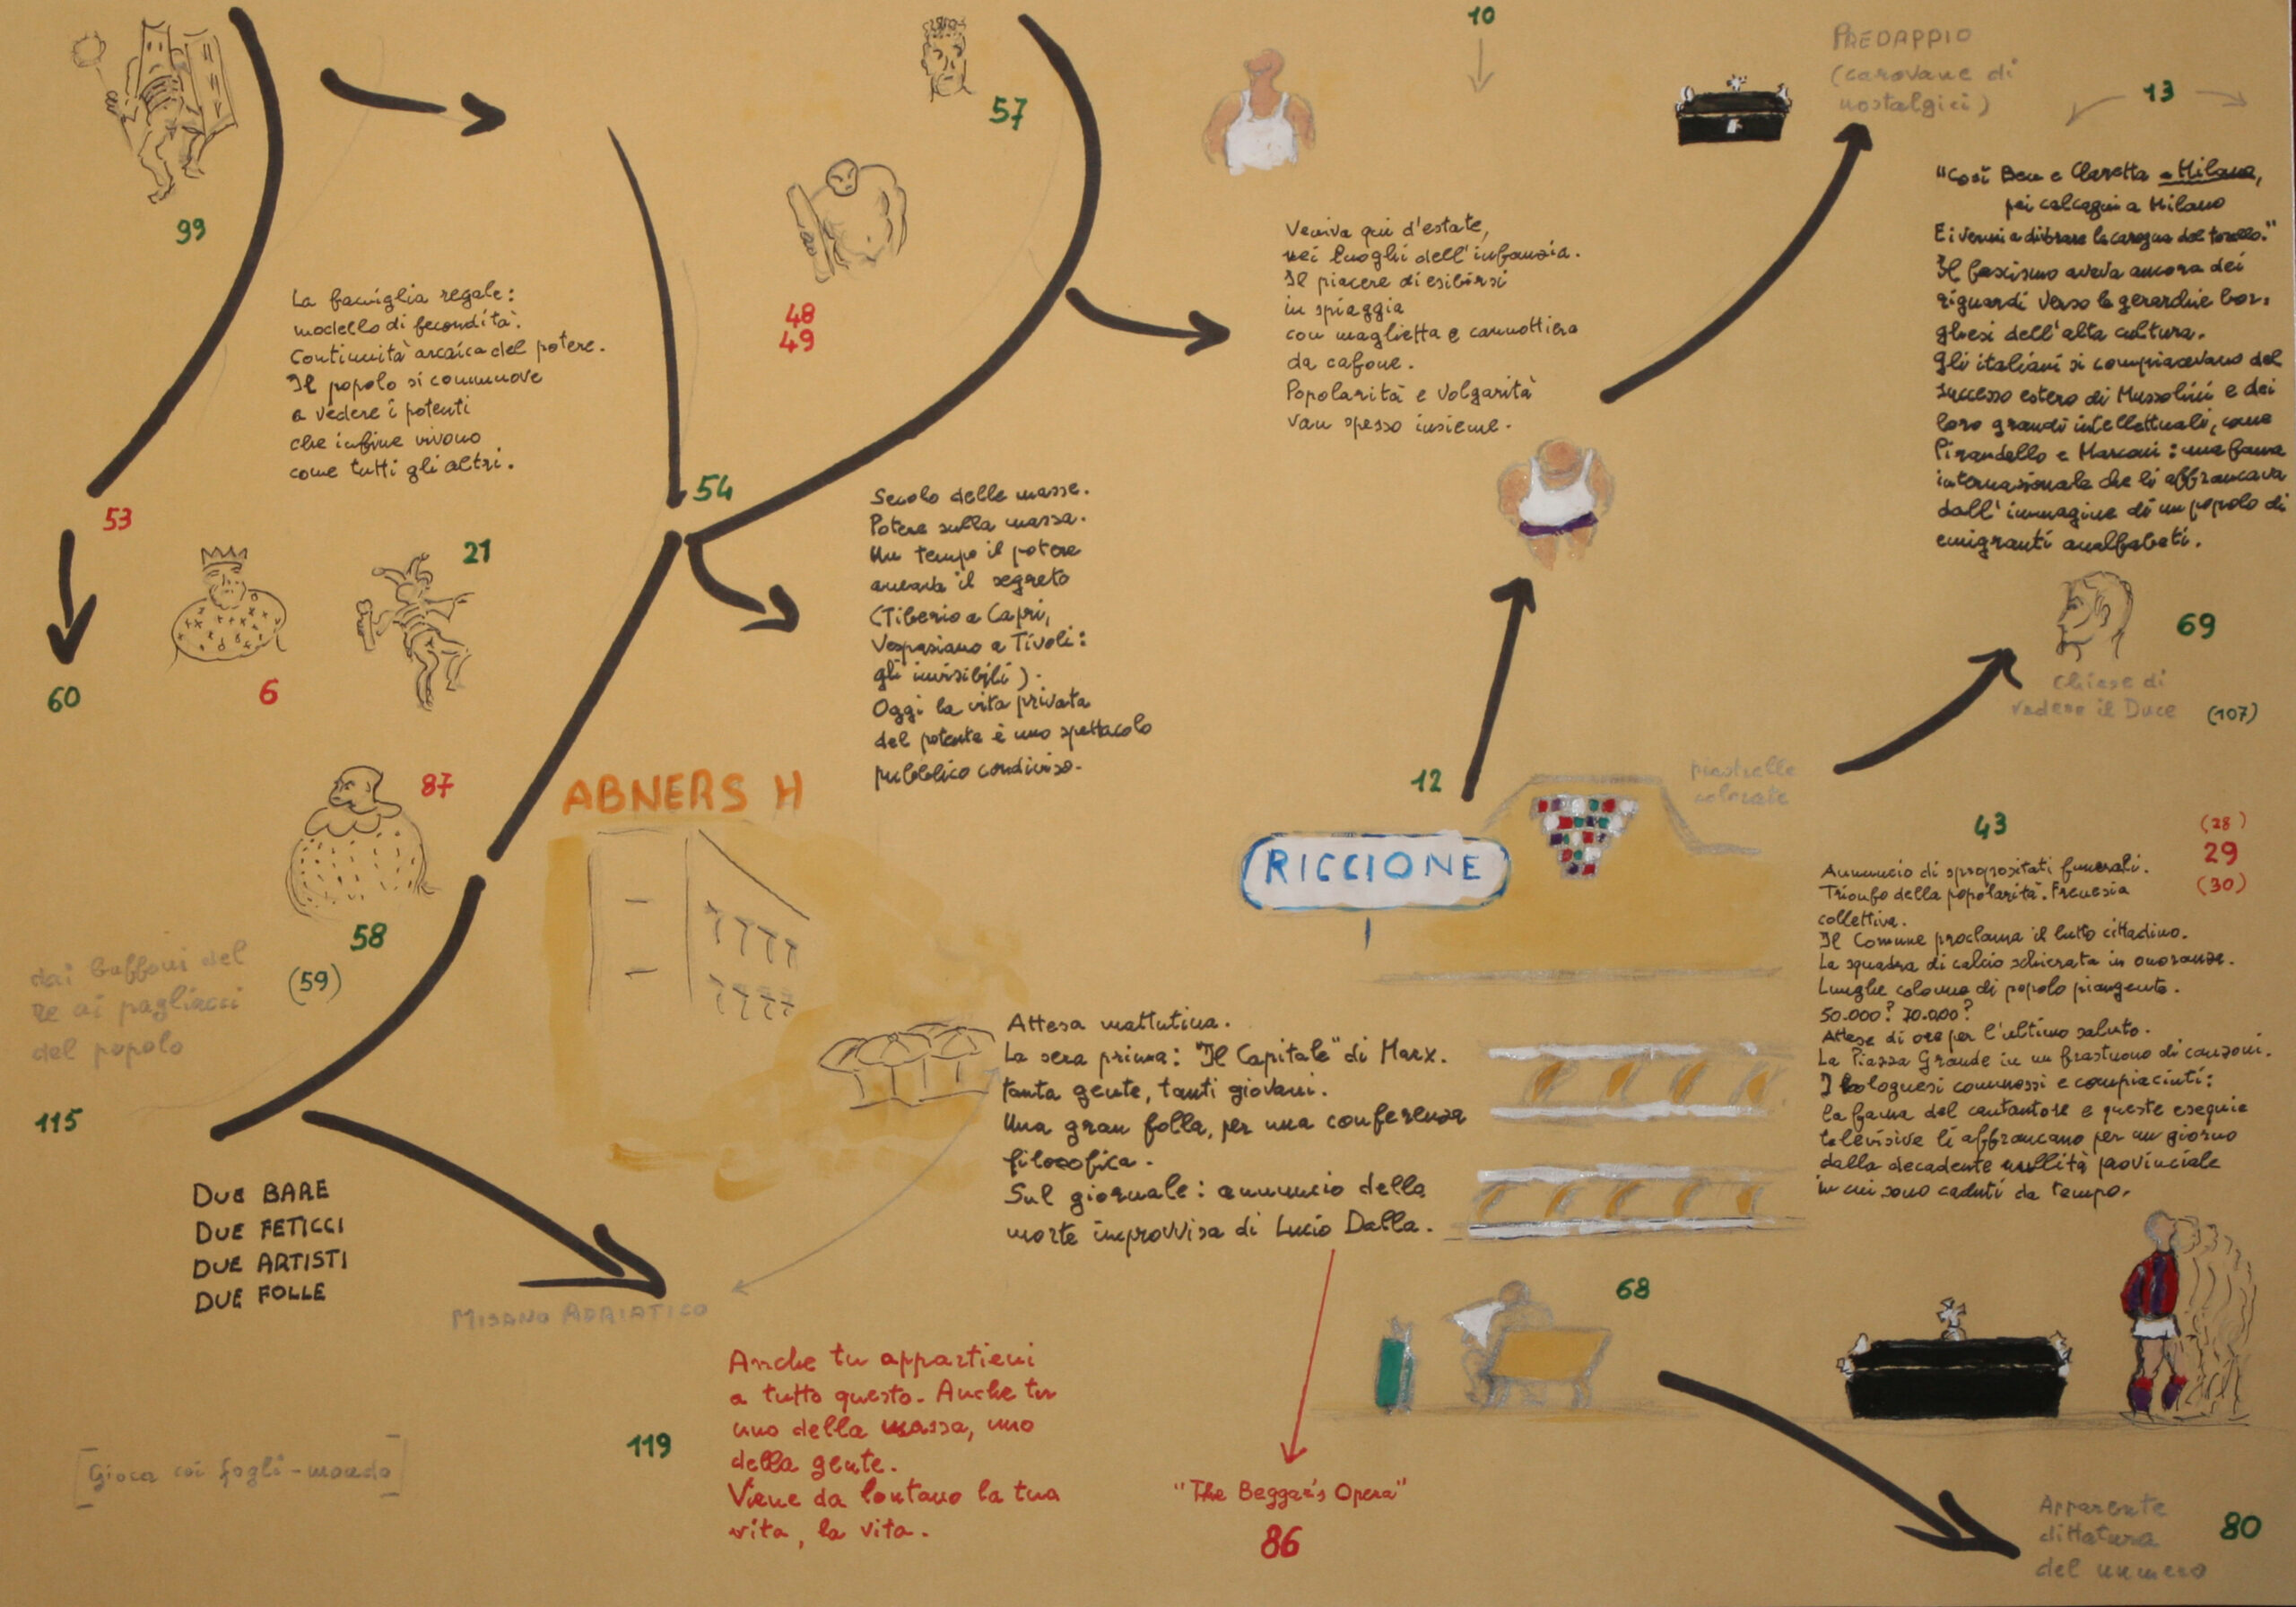 99
La famiglia regale:
modello di fecondità.
Continuità arcaica del potere.
Il popolo si commuove
a vedere i potenti
che infine vivono
come tutti gli altri.
53
60
6
21
87
58
(59)
dai buffoni del
re ai pagliacci
del popolo
115
DUE BARE
DUE FETICCI
DUE ARTISTI
DUE FOLLE
[Gioca coi fogli-mondo]
57
48
49
54
Secolo delle masse.
Potere sulla massa.
Un tempo il potere
amava il segreto
(Tiberio a Capri,
Vespasiano a Tivoli:
gli invisibili).
Oggi la vita privata
del potente è uno spettacolo
pubblico condiviso.
ABNERS H
MISANO ADRIATICO
Attesa mattutina.
La sera prima: "Il Capitale" di Marx.
tanta gente, tanti giovani.
Una gran folla, per una conferenza
filosofica.
Sul giornale: annuncio della
morte improvvisa di Lucio Dalla.
119
Anche tu appartieni
a tutto questo. Anche tu
uno della massa, uno
della gente.
Viene da lontano la tua
vita, la vita.
"The Beggar's Opera"
86
10
Veniva qui d'estate,
nei luoghi dell'infanzia.
Il piacere di esibirsi
in spiaggia
con maglietta e cannottiera
da cafone.
Popolarità e Volgarità
van spesso insieme.
12
RICCIONE
piastrelle
colorate
68
PREDAPPIO
(carovane di
nostalgici)
13
"Così Ben e Claretta a Milano,
pei calcagni a Milano
E i vermi a
la carogna del torello."
Il fascismo aveva ancora dei
riguardi verso le gerarchie bor-
ghesi dell'alta cultura.
Gli italiani si compiacevano del
successo estero di Mussolini e dei
loro grandi intellettuali, come
Pirandello e Marconi: una fama
internazionale che li affrancava
dall'immagine di un popolo di
emigranti analfabeti.
69
Chiese di
vedere il Duce
(107)
43
(28)
29
(30)
Annuncio di spropositati funerali.
Trionfo della popolarità. Frenesia
collettiva.
Il Comune proclama il lutto cittadino.
La squadra di calcio schierata in onoranze.
Lunghe colonne di popolo piangente.
50.000? 70.000?
Attese di ore per l'ultimo saluto.
La Piazza Grande in un frastuono di canzoni.
I bolognesi commossi e compiaciuti:
la fama del cantautore e queste esequie
televisive li affrancano per un giorno
dalla decadente nullità provinciale
in cui sono caduti da tempo.
Apparente
dittatura
del numero
80